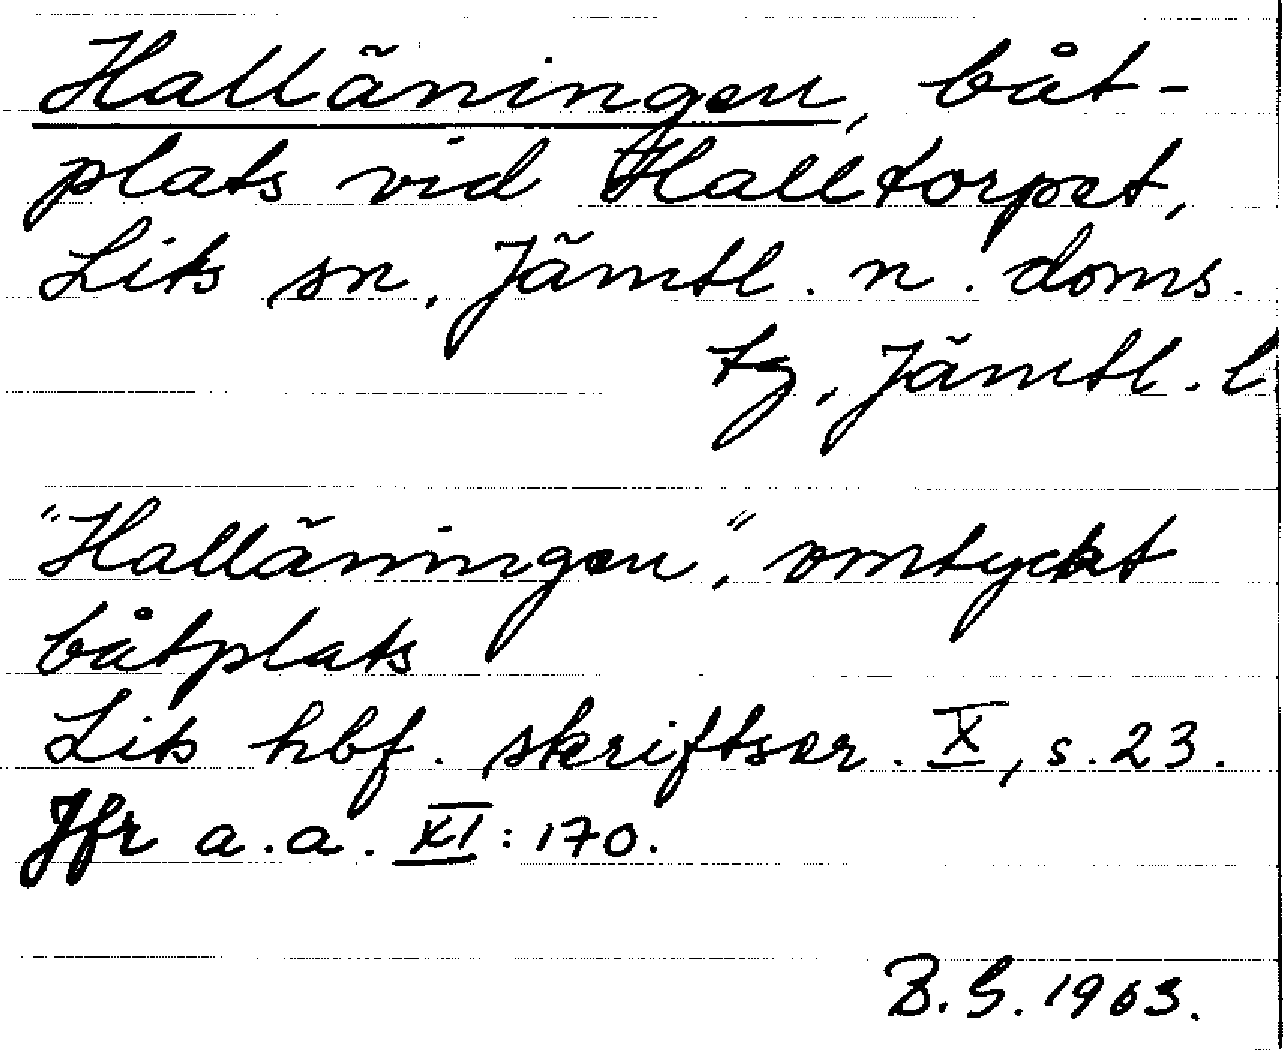 Halläningen, båt-
plats vid Halltorpet,
Lits sn, Jämtl. n. doms.
tg, Jämtl. l.
"Halläningen", omtyckt
båtplats
Lits hbf. skriftser. X, s. 23.
Jfr a.a. XI: 170.
B.G. 1963.